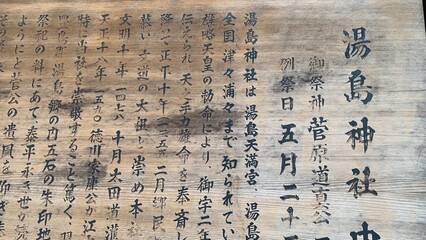 湯島神社由
御祭神 菅原道真公
例祭日 五月二十
湯島神社は湯島天満宮、湯島
全国津々浦々まで知られてい
雄略天皇の勅命により、御宇二年
伝えられ、天之手力雄命を奉斎し
降って正平十年(一三五五)二月郷民
慕い、文道の大祖と崇め本社
文明十年(一四七八)十月太田道灌
天正十八年(一五九〇)徳川家康公が江
特に当社を崇敬すること篤く、翌
湯島郷の内五石の朱印地
祭祀の料にあて、泰平永き世が続
ようにと菅公の遺風を仰ぎ奉